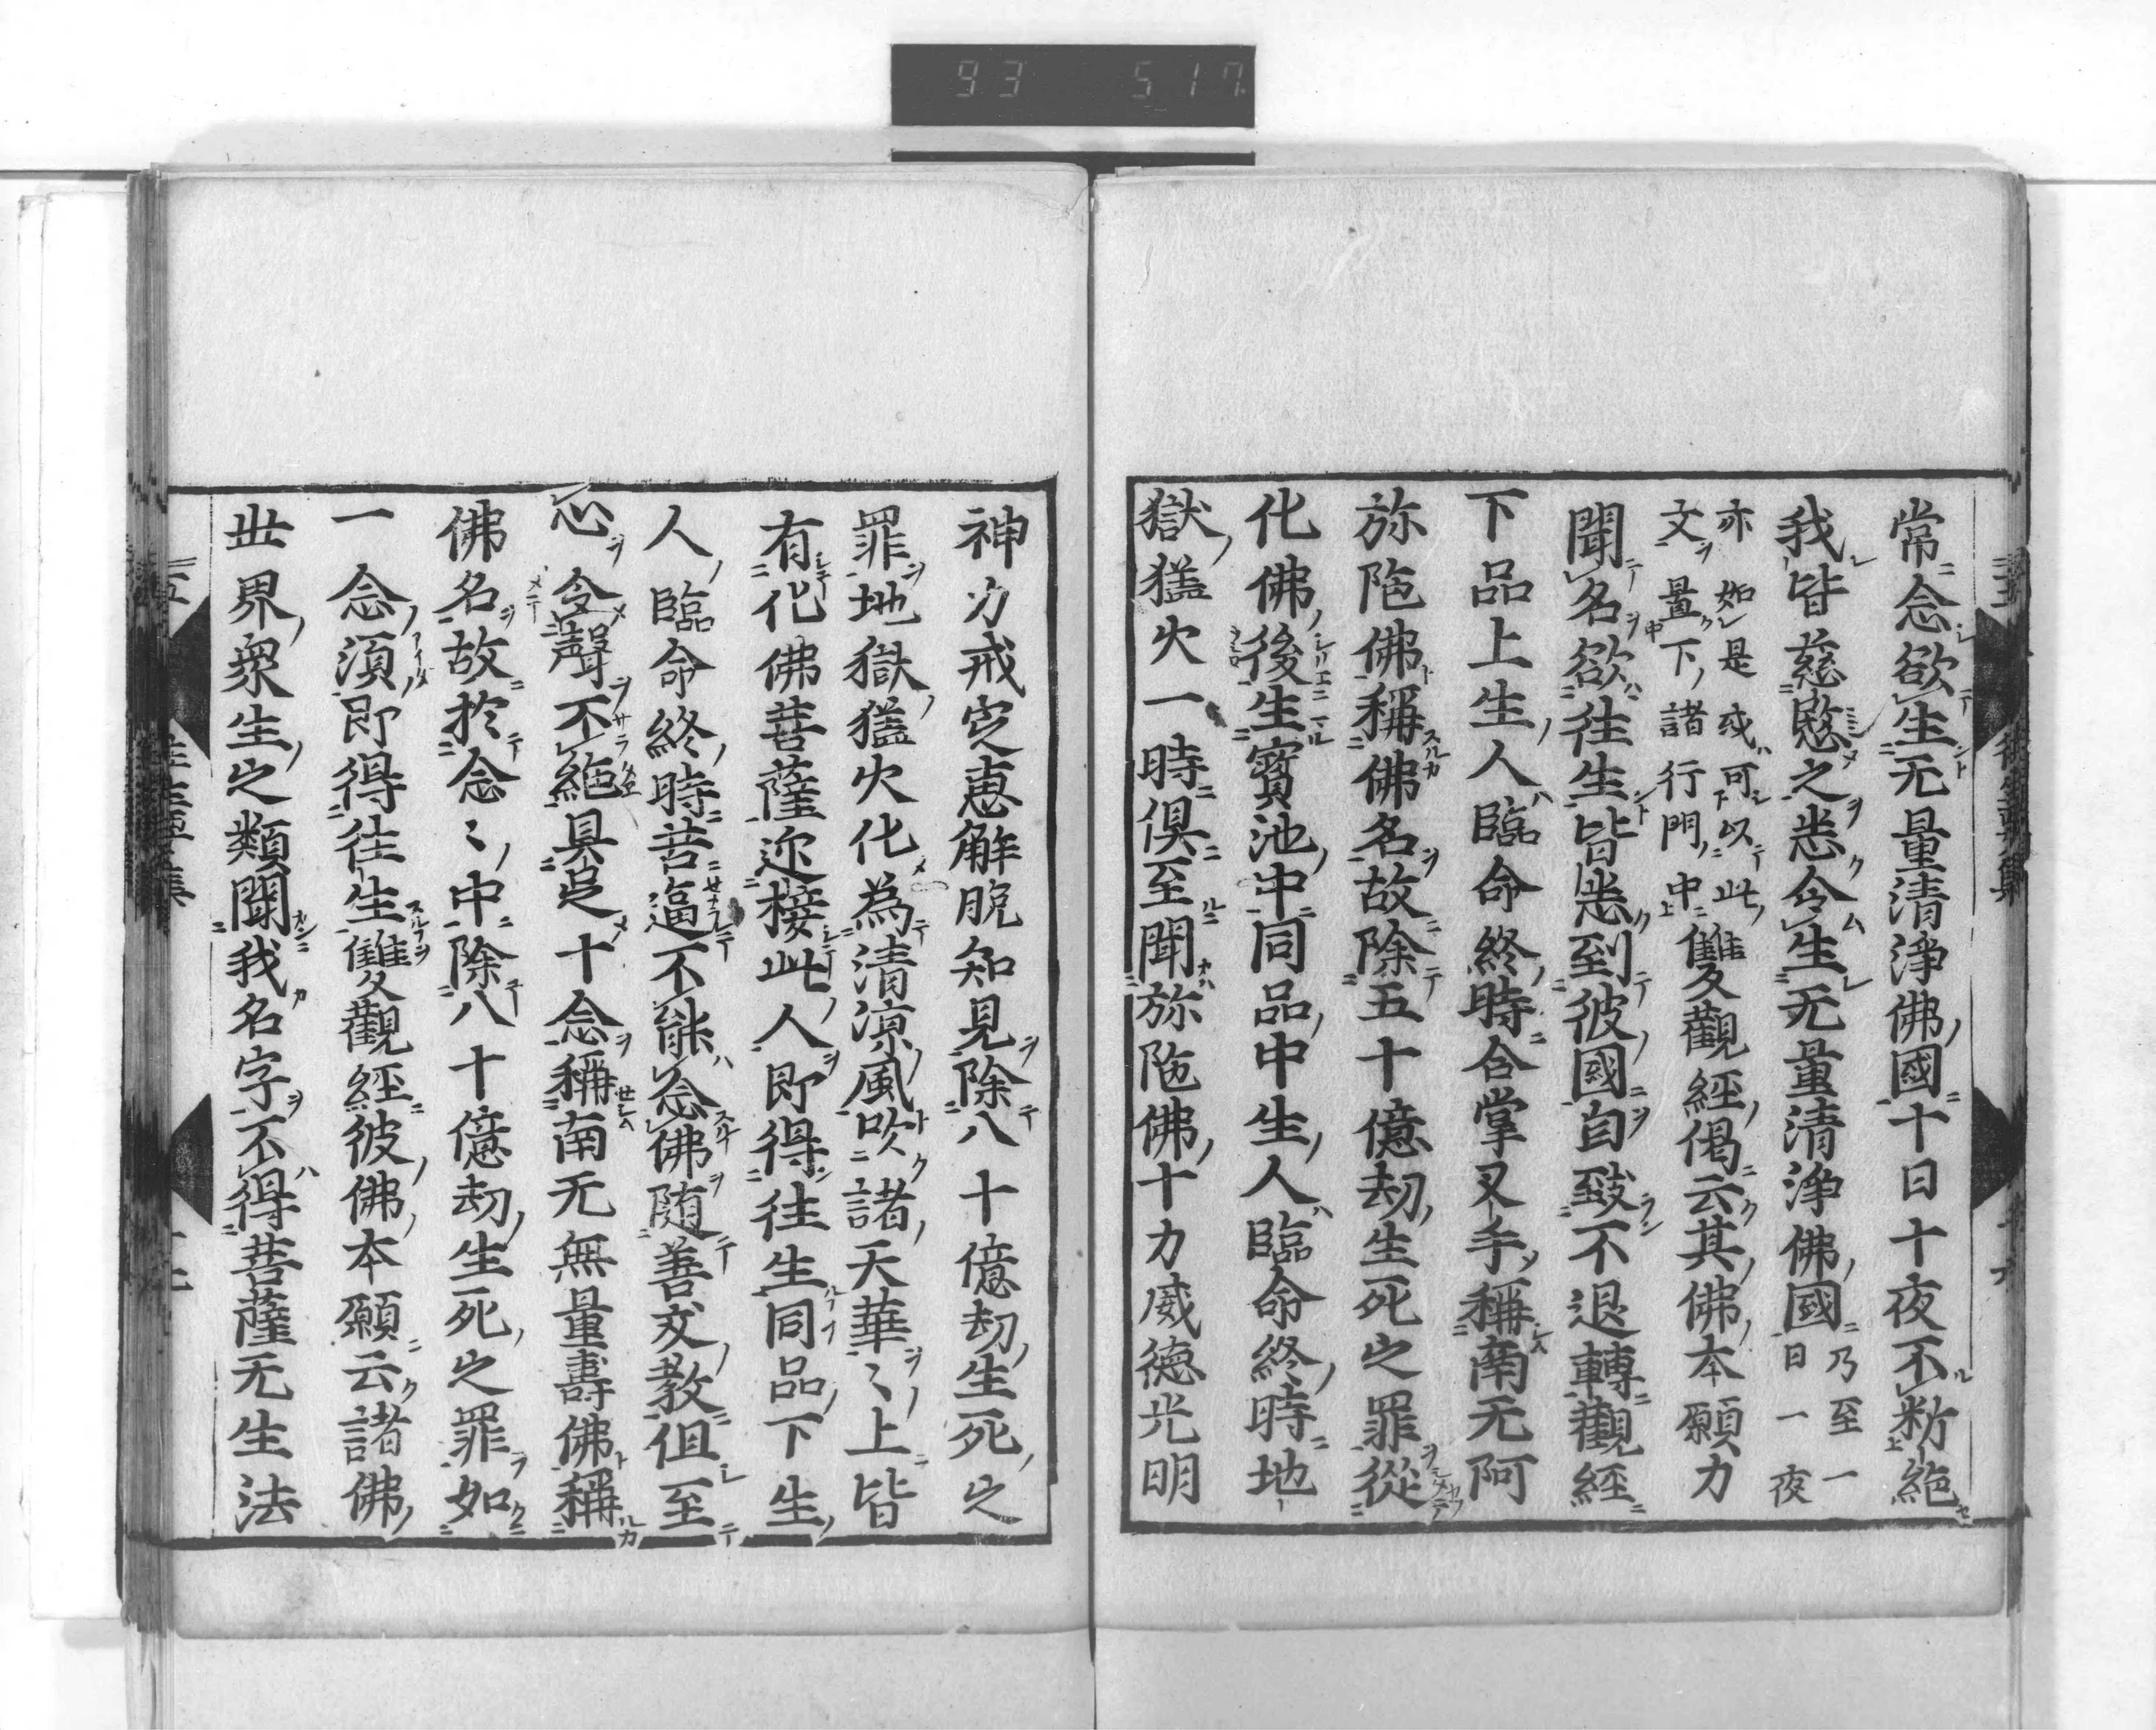 93 517
常念欲生无量清淨佛國十日十夜不斷絶
我皆慈愍之悉令生无量清淨佛國乃至一
日一夜
亦如是或可以此
文置下諸行門中雙觀經偈云其佛本願力
聞名欲往生皆悉到彼國自致不退轉觀經
下品上生人臨命終時合掌叉手稱南无阿
弥陁佛稱佛名故除五十億劫生死之罪從
化佛後生寳池中同品中生人臨命終時地
獄猛火一時俱至聞弥陁佛十力威德光明
神力戒定恵解脱知見除八十億劫生死之
罪地獄猛火化為清涼風吹諸天華〻上皆
有化佛菩薩迎接此人即得往生同品下生
人臨命終時苦逼不能念佛随善友教但至
心令聲不絶具足十念稱南无無量壽佛稱
佛名故於念〻中除八十億劫生死之罪如
一念湏即得往生雙觀經彼佛本願云諸佛
世界衆生之類聞我名字不得菩薩无生法